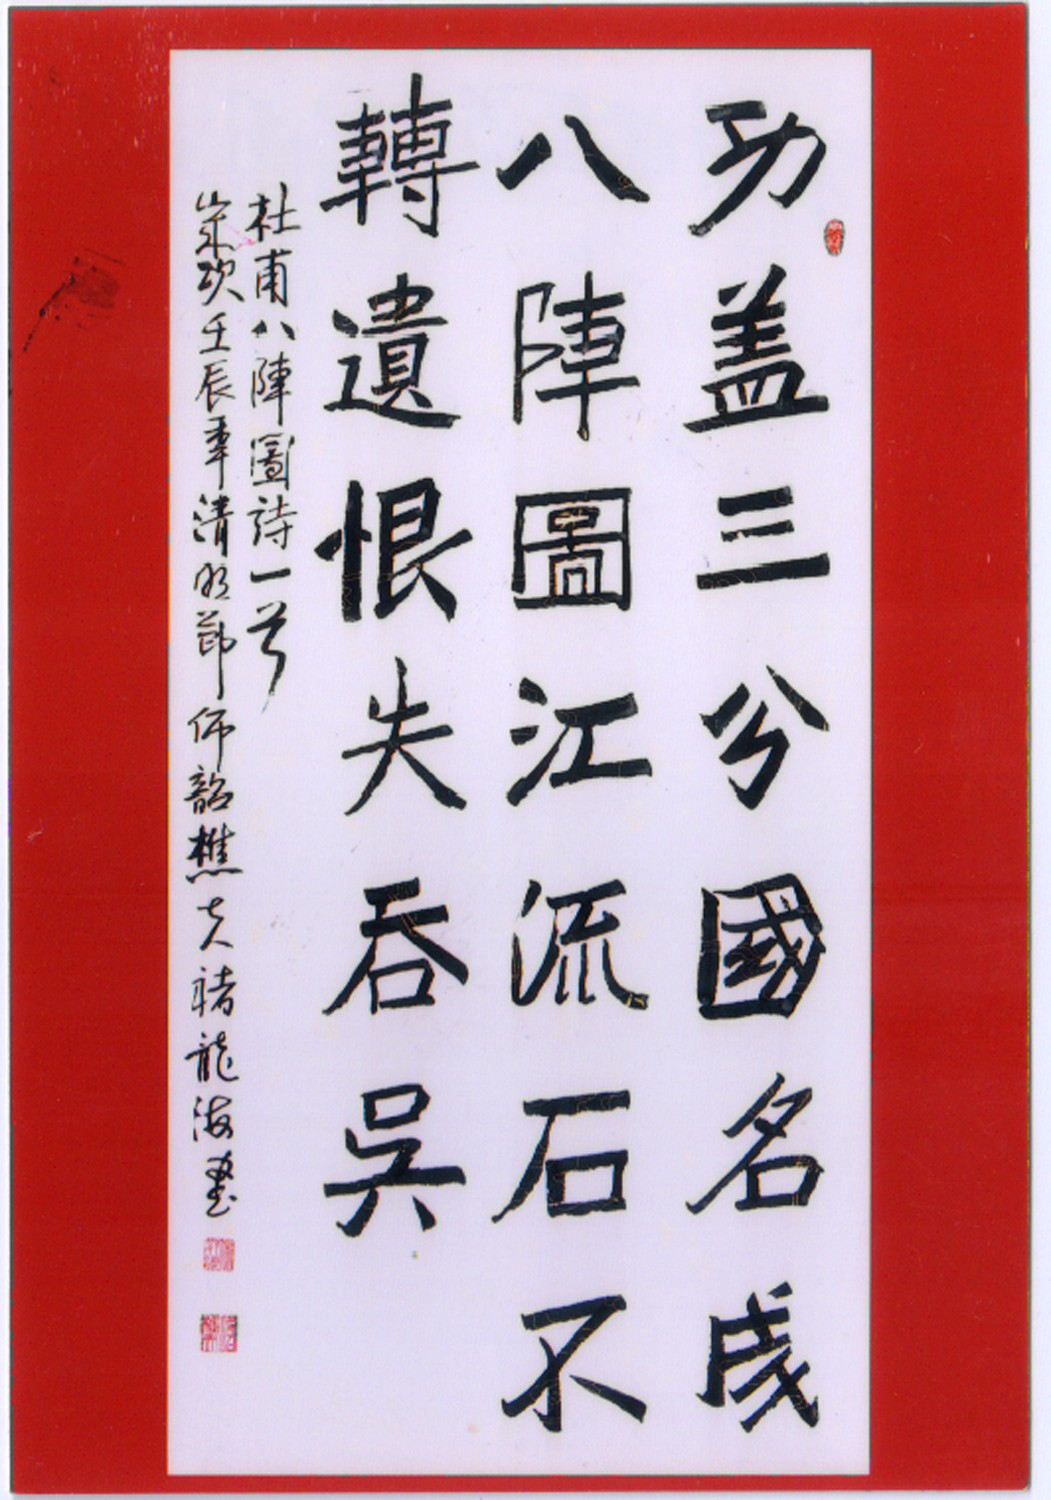 功盖三分國名成
八陣圖江流石不
轉遺恨失吞吳
杜甫八陣圖詩一首
歲次壬辰年清明節師韶樵夫褚龍海書